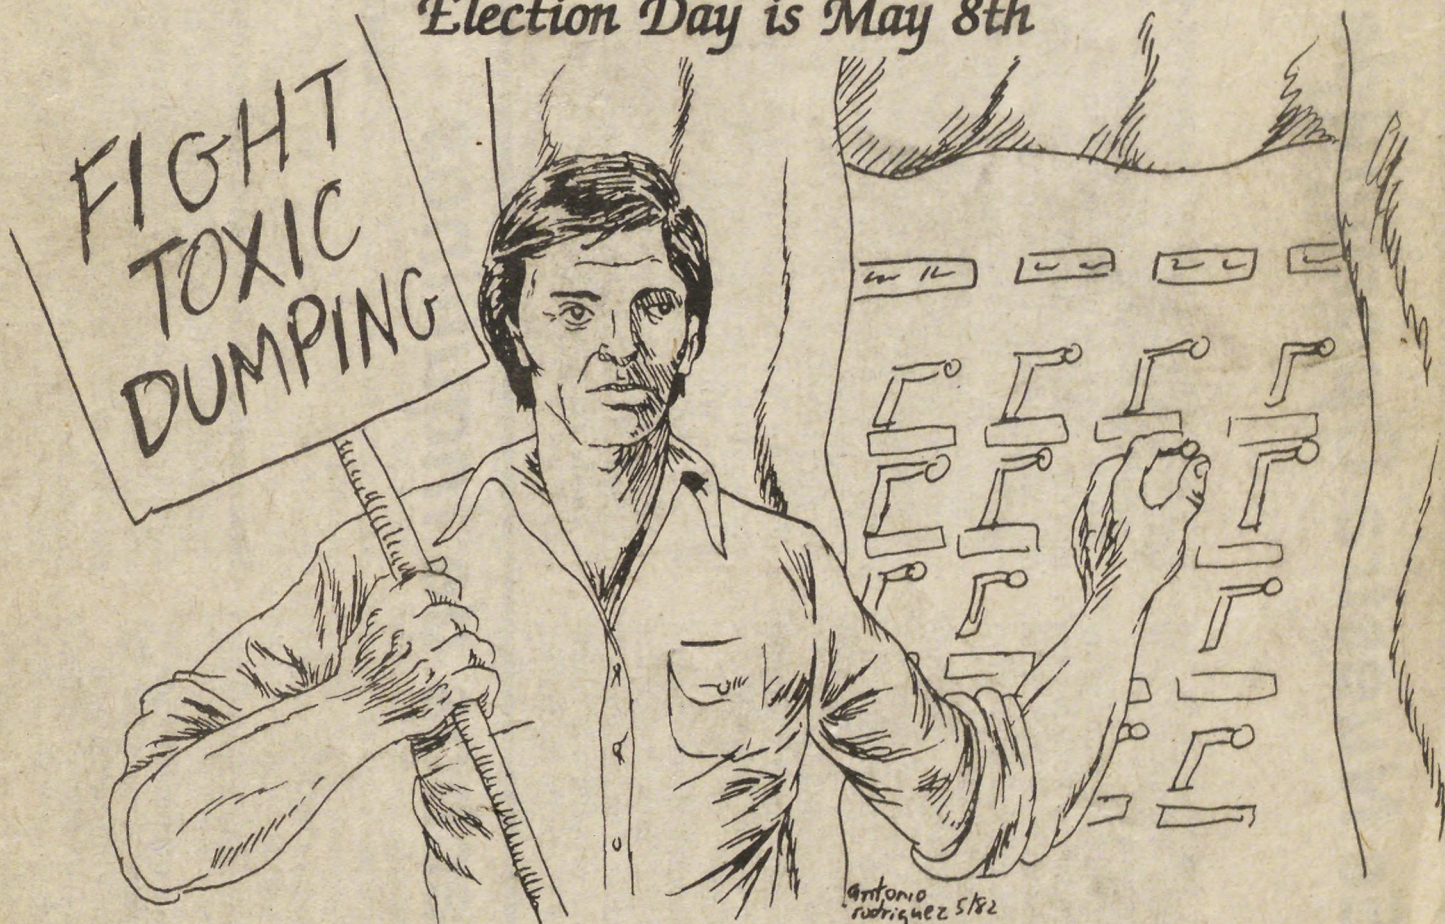 Election Day is May 8th
FIGHT
TOXIC
DUMPING
antonio
rodriguez 5/82